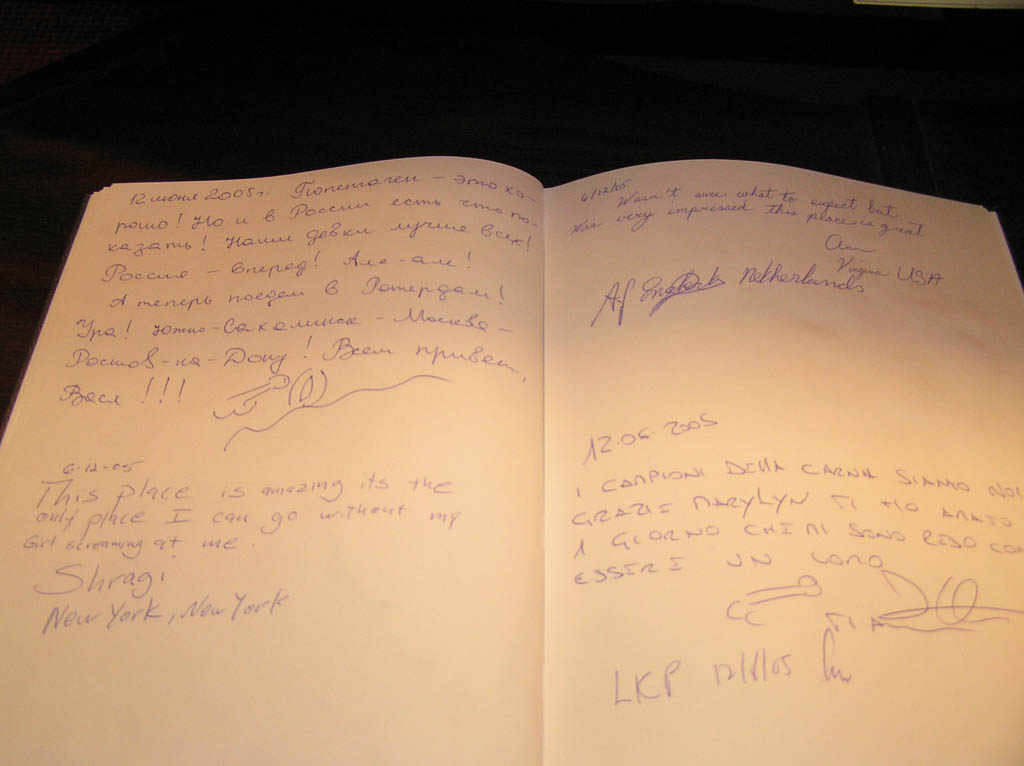 12 июня 2005г. Копенгаген – это хо-
рошо! Но и в России есть что по-
казать! Наши девки лучше всех!
Россия – вперёд! Але-але!
А теперь поедем в Ротердам!
Ура! Южно-Сахалинск – Москва –
Ростов-на-Дону! Всем привет,
Вася!!!
6-12-05
This place is amazing its the
only place I can go without my
Girl screaming at me.
Shragi
New York, New York
6/12/05
Wasn't sure what to expect but
was very impressed this place is great
Ann
Virginia USA
Netherlands
12.06.2005
I CAMPIONI DELLA CARNIA SIAMO NOI
GRAZIE MARYLYN TI HO AMATO
1 GIORNO CHE MI SONO RESO CON
ESSERE UN
LKP 12/6/05